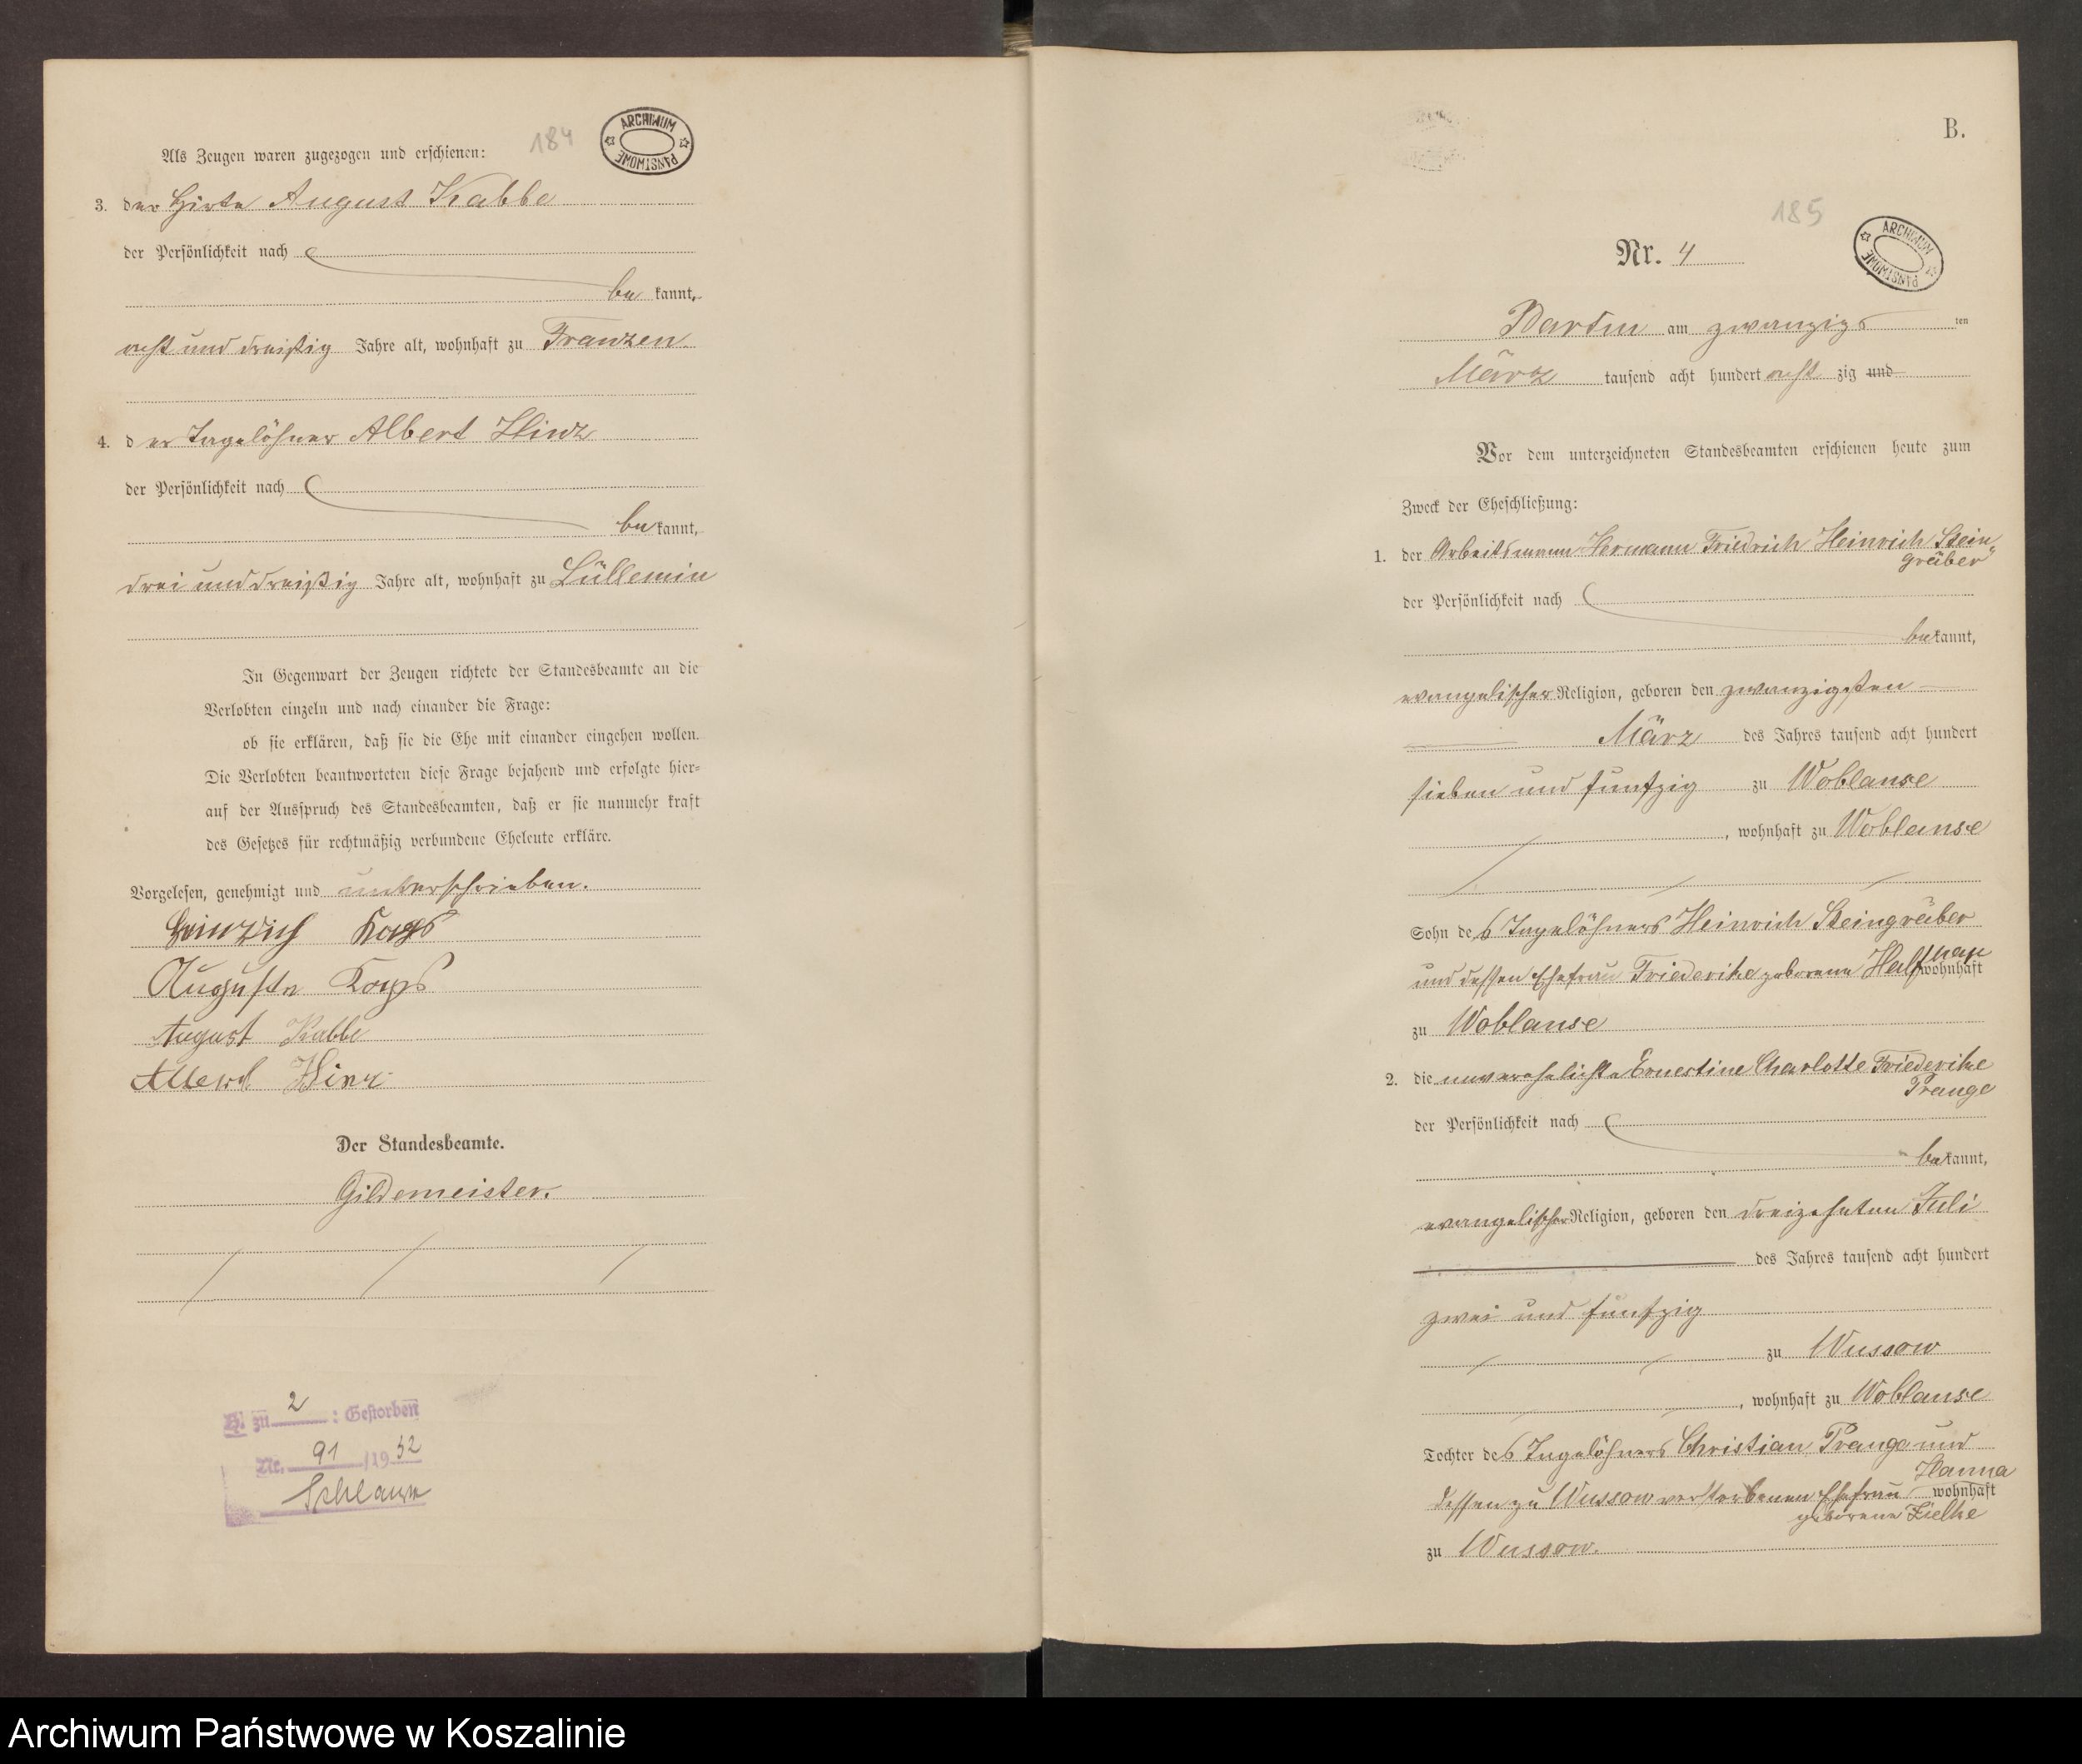 184
ARCHIWUM PAŃSTWOWE
Als Zeugen waren zugezogen und erschienen:
3. der Hirte August Kabbe
der Persönlichkeit nach
be kannt,
acht und dreißig Jahre alt, wohnhaft zu Franzen
4. der Tagelöhner Albert Hinz
der Persönlichkeit nach
be kannt,
drei und dreißig Jahre alt, wohnhaft zu Lüllemin
In Gegenwart der Zeugen richtete der Standesbeamte an die
Verlobten einzeln und nach einander die Frage:
ob sie erklären, daß sie die Ehe mit einander eingehen wollen.
Die Verlobten beantworteten diese Frage bejahend und erfolgte hier-
auf der Ausspruch des Standesbeamten, daß er sie nunmehr kraft
des Gesetzes für rechtmäßig verbundene Eheleute erkläre.
Vorgelesen, genehmigt und unterschrieben.
Heinrich
Auguste
August Kabbe
Hinz
Der Standesbeamte.
Gildemeister.
H. zu 2 : Gestorben
Nr. 91 /1952
Schlawe
B.
185
ARCHIWUM PAŃSTWOWE
Nr. 4
Bartin am zwanzigs ten
März tausend acht hundert acht zig und
Vor dem unterzeichneten Standesbeamten erschienen heute zum
Zweck der Eheschließung:
1. der Arbeitsmann Hermann Friedrich Heinrich Stein
gräber
der Persönlichkeit nach
be kannt,
evangelischer Religion, geboren den zwanzigsten
März des Jahres tausend acht hundert
sieben und funfzig zu Woblanse
, wohnhaft zu Woblanse
Sohn des Tagelöhners Heinrich Steingräber
und dessen Ehefrau Friederike geborene wohnhaft
zu Woblanse
2. die unverehelichte Ernestine Charlotte Friederike
Prange
der Persönlichkeit nach
be kannt,
evangelischer Religion, geboren den dreizehnten Juli
des Jahres tausend acht hundert
zwei und funfzig
zu Wussow
, wohnhaft zu Woblanse
Tochter des Tagelöhners Christian Prange und
Hanna
dessen zu Wussow verstorbenen Ehefrau wohnhaft
geborene Zielke
zu Wussow.
Archiwum Państwowe w Koszalinie